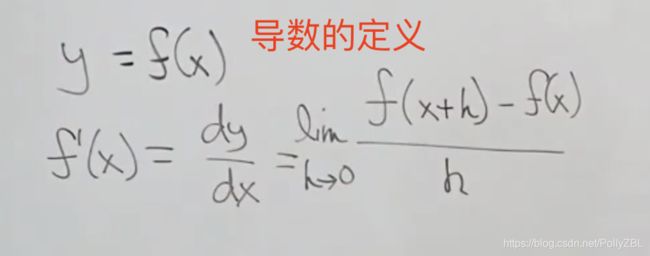 y = f(x) 导数的定义
f'(x) = dy/dx = lim h→0 f(x+h) - f(x) / h
https://blog.csdn.net/PollyZBL